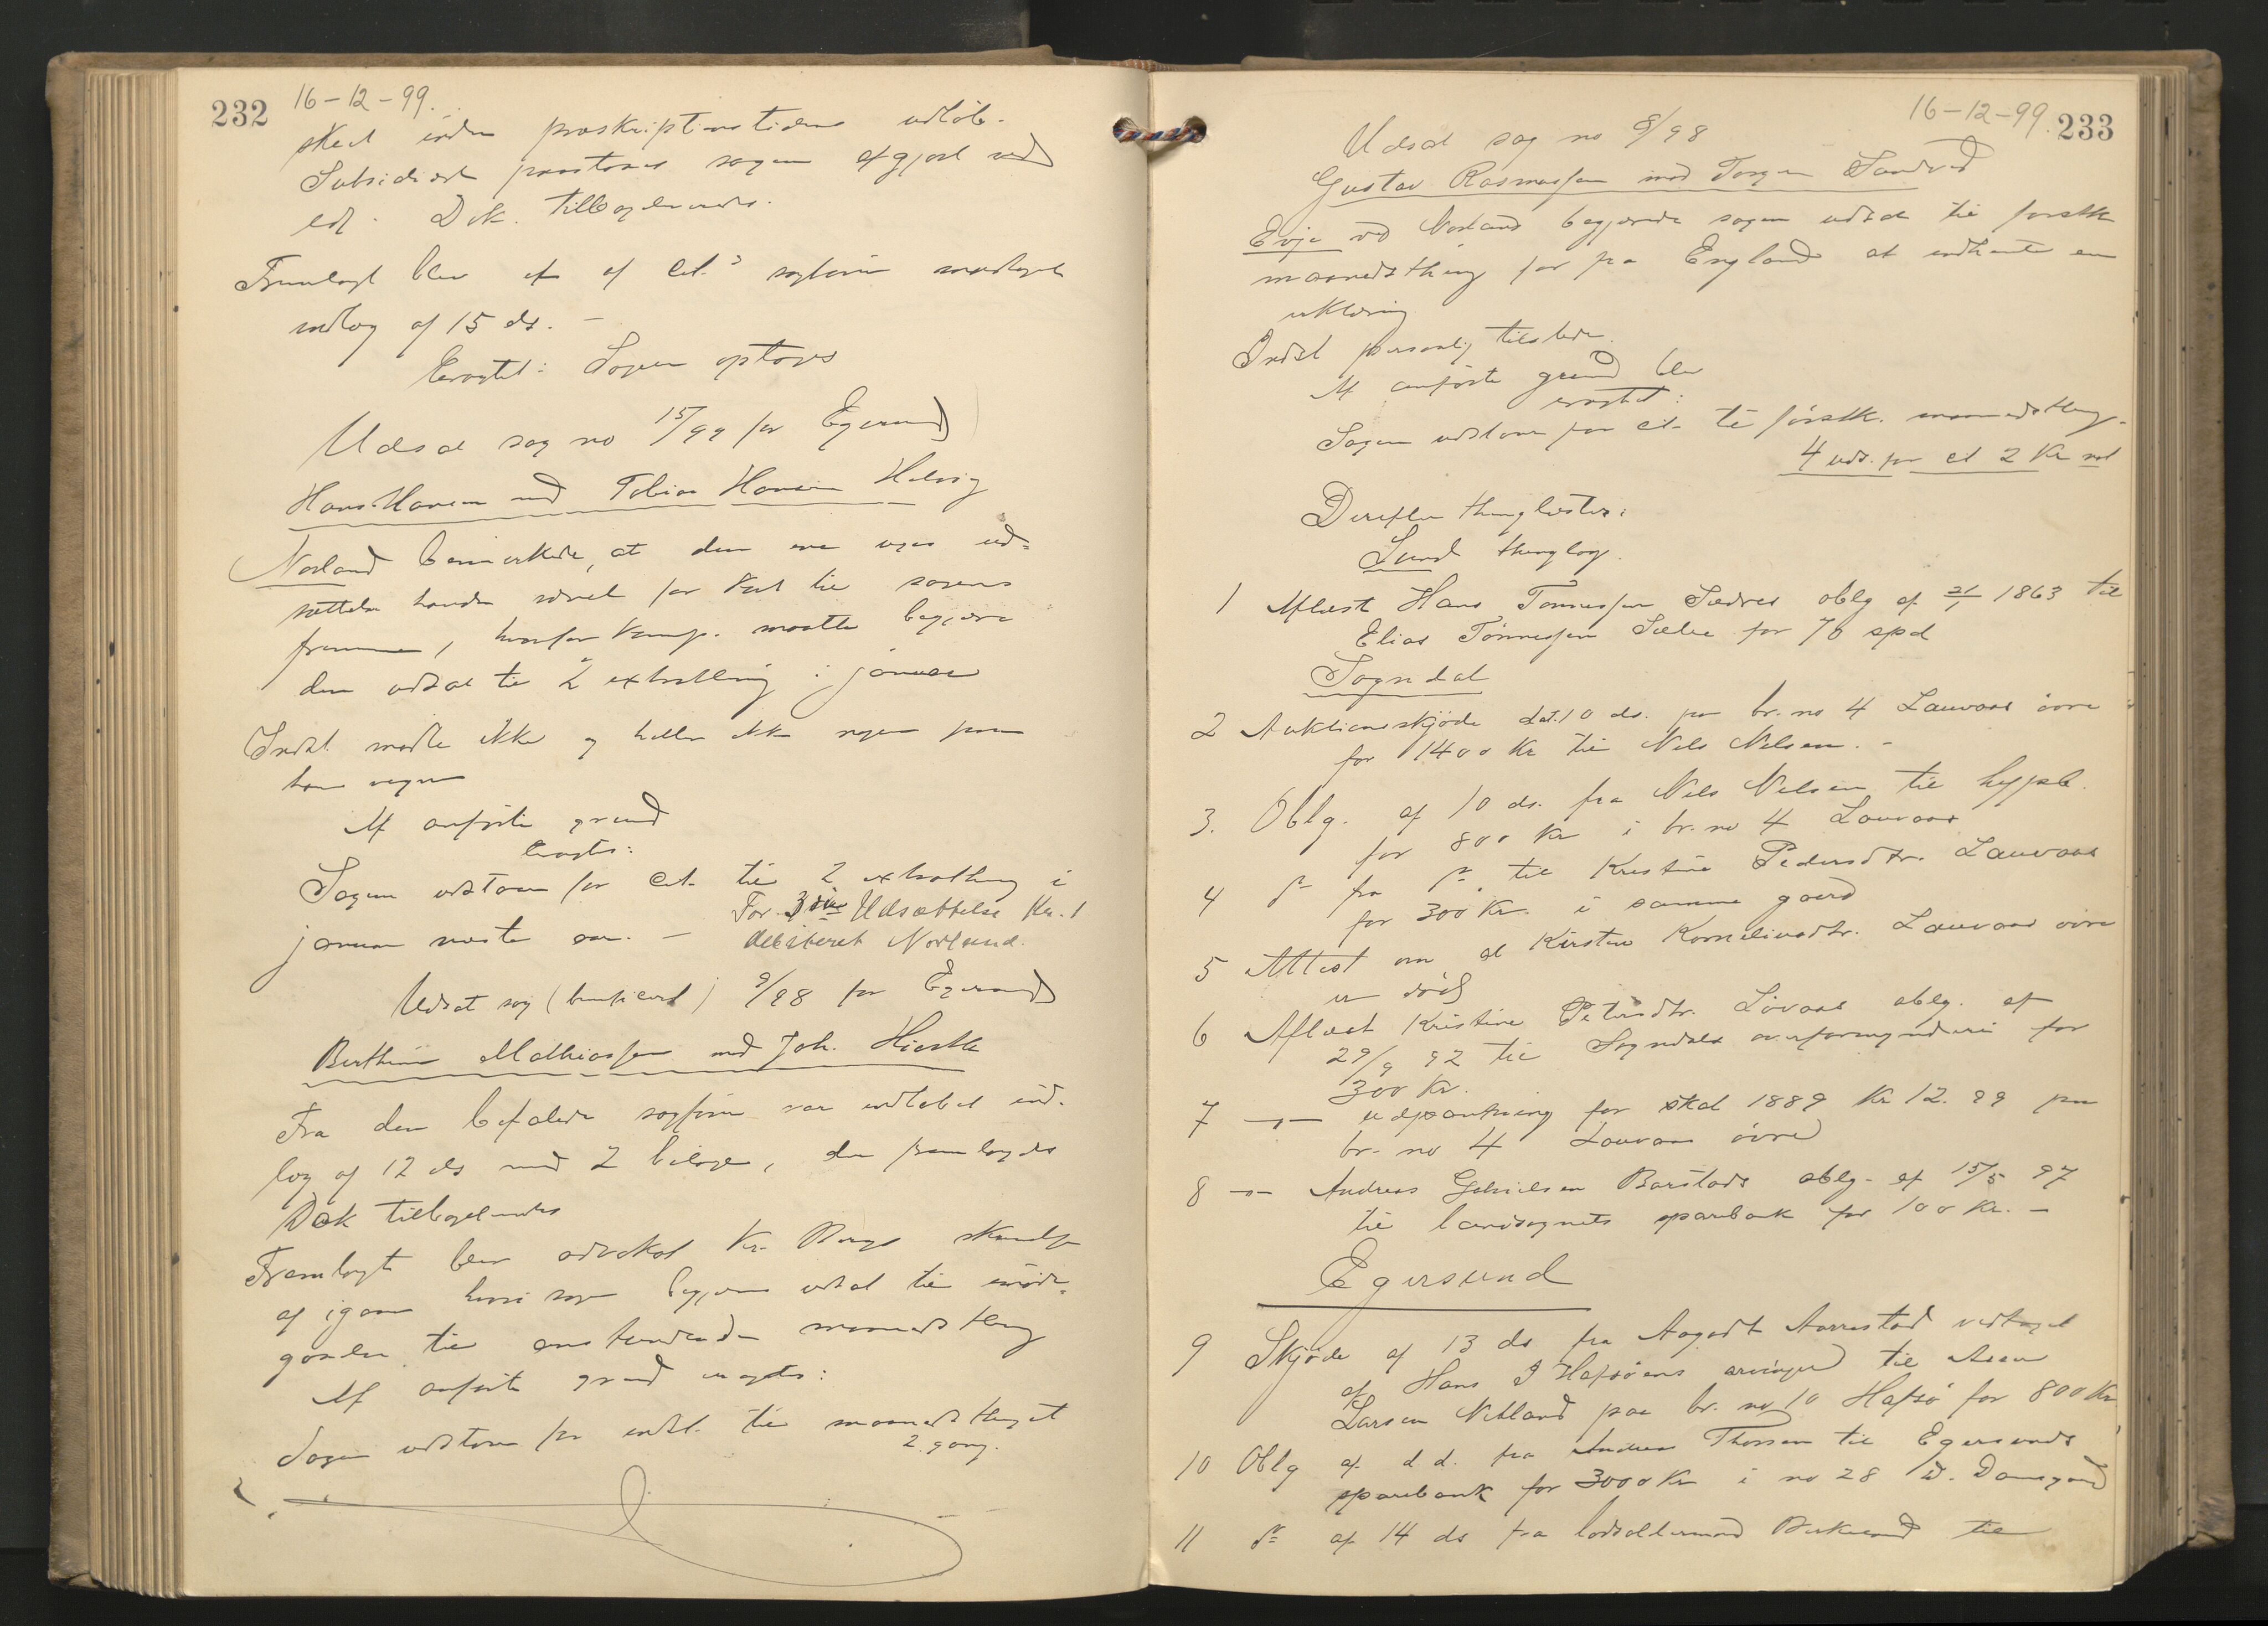 232 16-12-99.
skeet inden præskriptionstidens udløb.
Subsidiært paastaaes sagen afgjort ved
ed. Dok. tilbageleveredes.
Fremlagt blev et af cit.s sagfører modtaget
indlæg af 15 ds. –
Eragtet: Sagen optages
Udsat sag no 15/99 for Egersund
Hans Hansen mod Tobias Hansen
Norland bemærkede, at den ene uges ud-
sættelse havde været for kort til sagens
fremme, hvorfor komp. maatte begjære
den udsat til 2 extrathing i januar
Indst. mødte ikke og heller ikke nogen paa
hans vegne
Af anførte grund
eragtes:
Sagen udstaar for cit. til 2 extrathing i
januar næste aar. –
For 3die Udsættelse Kr. 1
debiteret Norland.
Udsat sag (beneficeret) 9/98 for Egersund
Berthine Mathiassen mod Joh.
Fra den befalede sagfører var indløbet ind-
læg af 12 ds med 2 bilage, der fremlagdes
Dok tilbageleveredes
Fremlagt blev advokat Kr. skrivelse
af igaar hvori sagen begjæres udsat til imøde-
gaaelse til anstundende maanedsthing
Af anførte grund eragtes:
Sagen udstaar for indst. til maanedsthinget
2. gang.
16-12-99. 233
Udsat sag no 8/98
Gustav Rasmussen mod Torger Sandved
Evje ved Norland begjærede sagen udsat til førstk
maanedsthing for fra England at indhente en
erklæring
Indst personlig tilstede.
Af anførte grund blev
eragtet:
Sagen udstaar for cit. til førstk. maanedsthing.
4 uds. for cit 2 Kr
Derefter thinglæstes:
Lund thinglag.
1 Aflæst Hans Tønnessen oblg af 21/1 1863 til
Elias Tønnessen for 70 spd
Sogndal
2 Auktionsskjøde dat. 10 ds. paa br. no 4 Lauvaas øvre
for 1400 Kr til Nels Nelsen. –
3. Oblg. af 10 ds. fra Nels Nelsen til hypb.
for 800 Kr i br. no 4 Lauvaas
4 do fra do til Kristine Pedersdtr. Lauvaas
for 300 Kr. i samme gaard
5 Attest om at Kirsten Korneliusdtr. Lauvaas øvre
er død
6 Aflæst Kristine Petersdtr. Løvaas oblg. af
29/9 92 til Sogndals overformynderi for
300 Kr.
7 –"– udpantning for skat 1889 Kr 12.99 paa
br. no 4 Lauvaas øvre
8 –"– Andreas Gabrielsen Barstads oblg. af 15/5 97
til landsognets sparebank for 100 Kr. –
Egersund
9 Skjøde af 13 ds fra Aagodt Aarrestad vedtaget
af Hans J Hafsøens arvinger til
Larsen Netland paa br. no 10 Hafsø for 800 Kr
10 Oblg af d.d. fra Andreas Thorsen til Egersunds
sparebank for 3000 Kr i no 28 D. Damsgaard
11 do af 14 ds fra lodsoldermand til